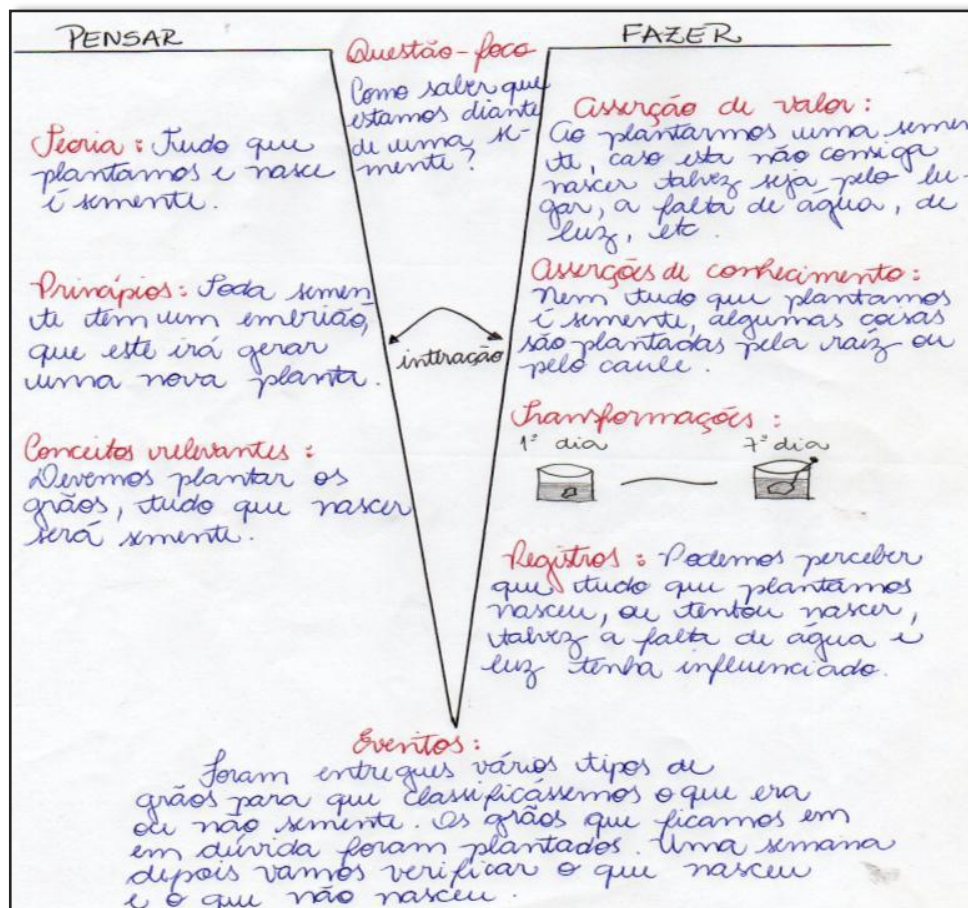 PENSAR
Teoria: Tudo que
plantamos e nasce
é semente.
Princípios: Toda semen
te tem um embrião,
que este irá gerar
uma nova planta.
Conceitos relevantes:
Devemos plantar os
grãos, tudo que nascer
será semente.
Questão-foco
Como saber que
estamos diante
de uma se-
mente?
interação
FAZER
Asserção de valor:
Ao plantarmos uma semen
te, caso esta não consiga
nascer talvez seja pelo lu-
gar, a falta de água, de
luz, etc.
Asserções de conhecimento:
Nem tudo que plantamos
é semente, algumas coisas
são plantadas pela raíz ou
pelo caule.
Transformações:
1º dia 7º dia
Registros: Podemos perceber
que tudo que plantamos
nasceu, ou tentou nascer,
talvez a falta de água e
luz tenha influenciado.
Eventos:
Foram entregues vários tipos de
grãos para que classificássemos o que era
ou não semente. Os grãos que ficamos em
em dúvida foram plantados. Uma semana
depois vamos verificar o que nasceu
e o que não nasceu.